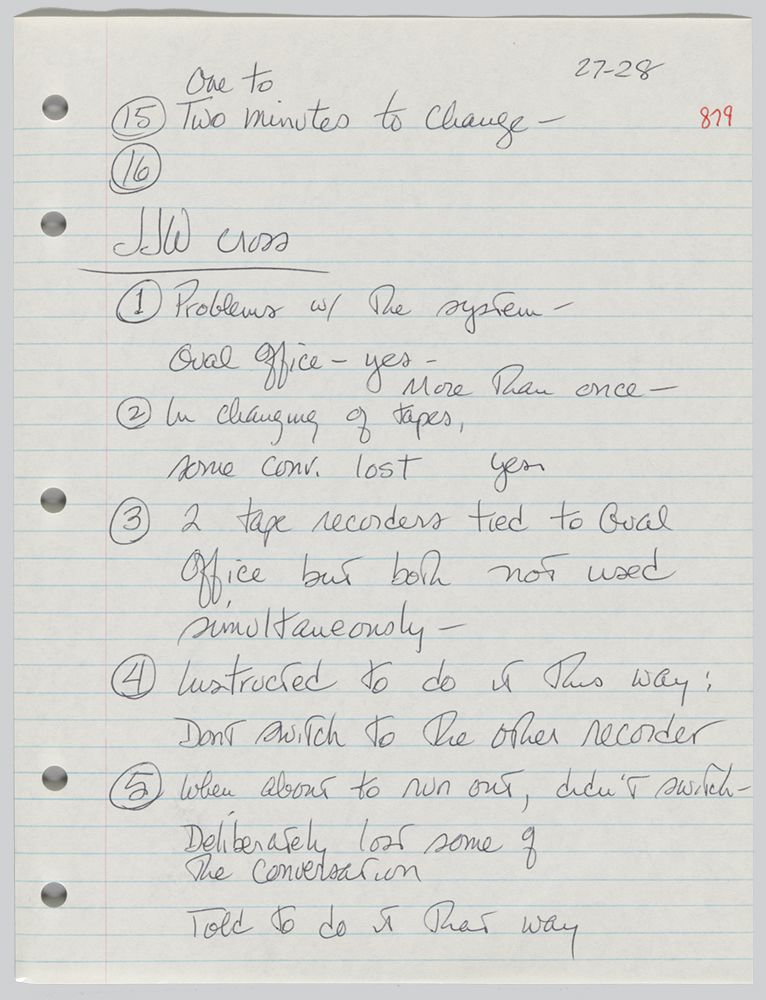 27-28
One to
(15) Two minutes to change – 879
(16)
JJW cross
(1) Problems w/ the system –
Oval Office – yes –
More than once –
(2) In changing of tapes,
some conv. lost yes
(3) 2 tape recorders tied to Oval
Office but both not used
simultaneously –
(4) Instructed to do it this way;
Don't switch to the other recorder
(5) When about to run out, didn't switch –
Deliberately lost some of
the conversation
Told to do it that way